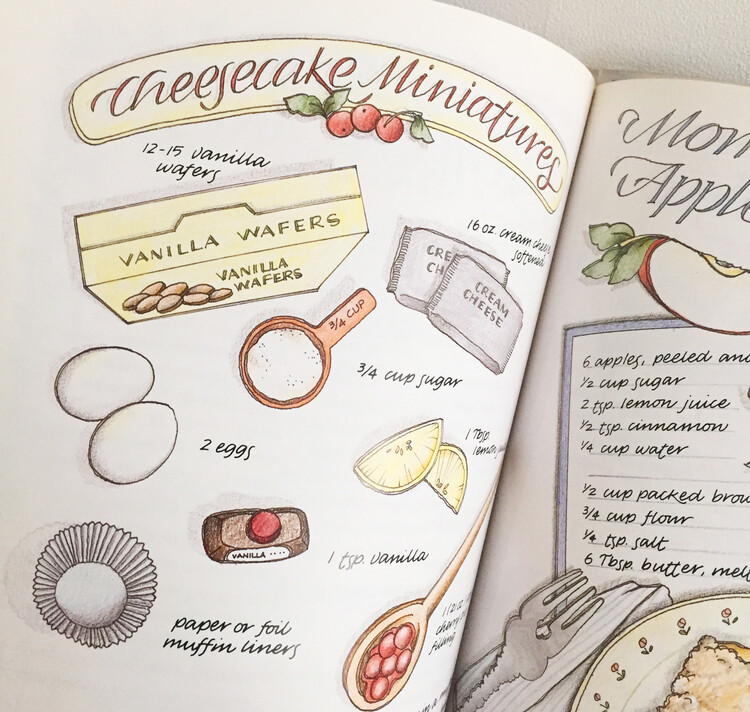 Cheesecake Miniatures
12-15 vanilla
wafers
VANILLA WAFERS
VANILLA
WAFERS
16 oz. cream
softened
CREAM
CHEESE
3/4 CUP
3/4 cup sugar
2 eggs
1 Tbsp.
lemon
VANILLA
1 tsp. vanilla
paper or foil
muffin liners
cherry
filling
Apple
6 apples, peeled and
1/2 cup sugar
2 tsp. lemon juice
1/2 tsp. cinnamon
1/4 cup water
1/2 cup packed
3/4 cup flour
1/4 tsp. salt
6 Tbsp. butter,